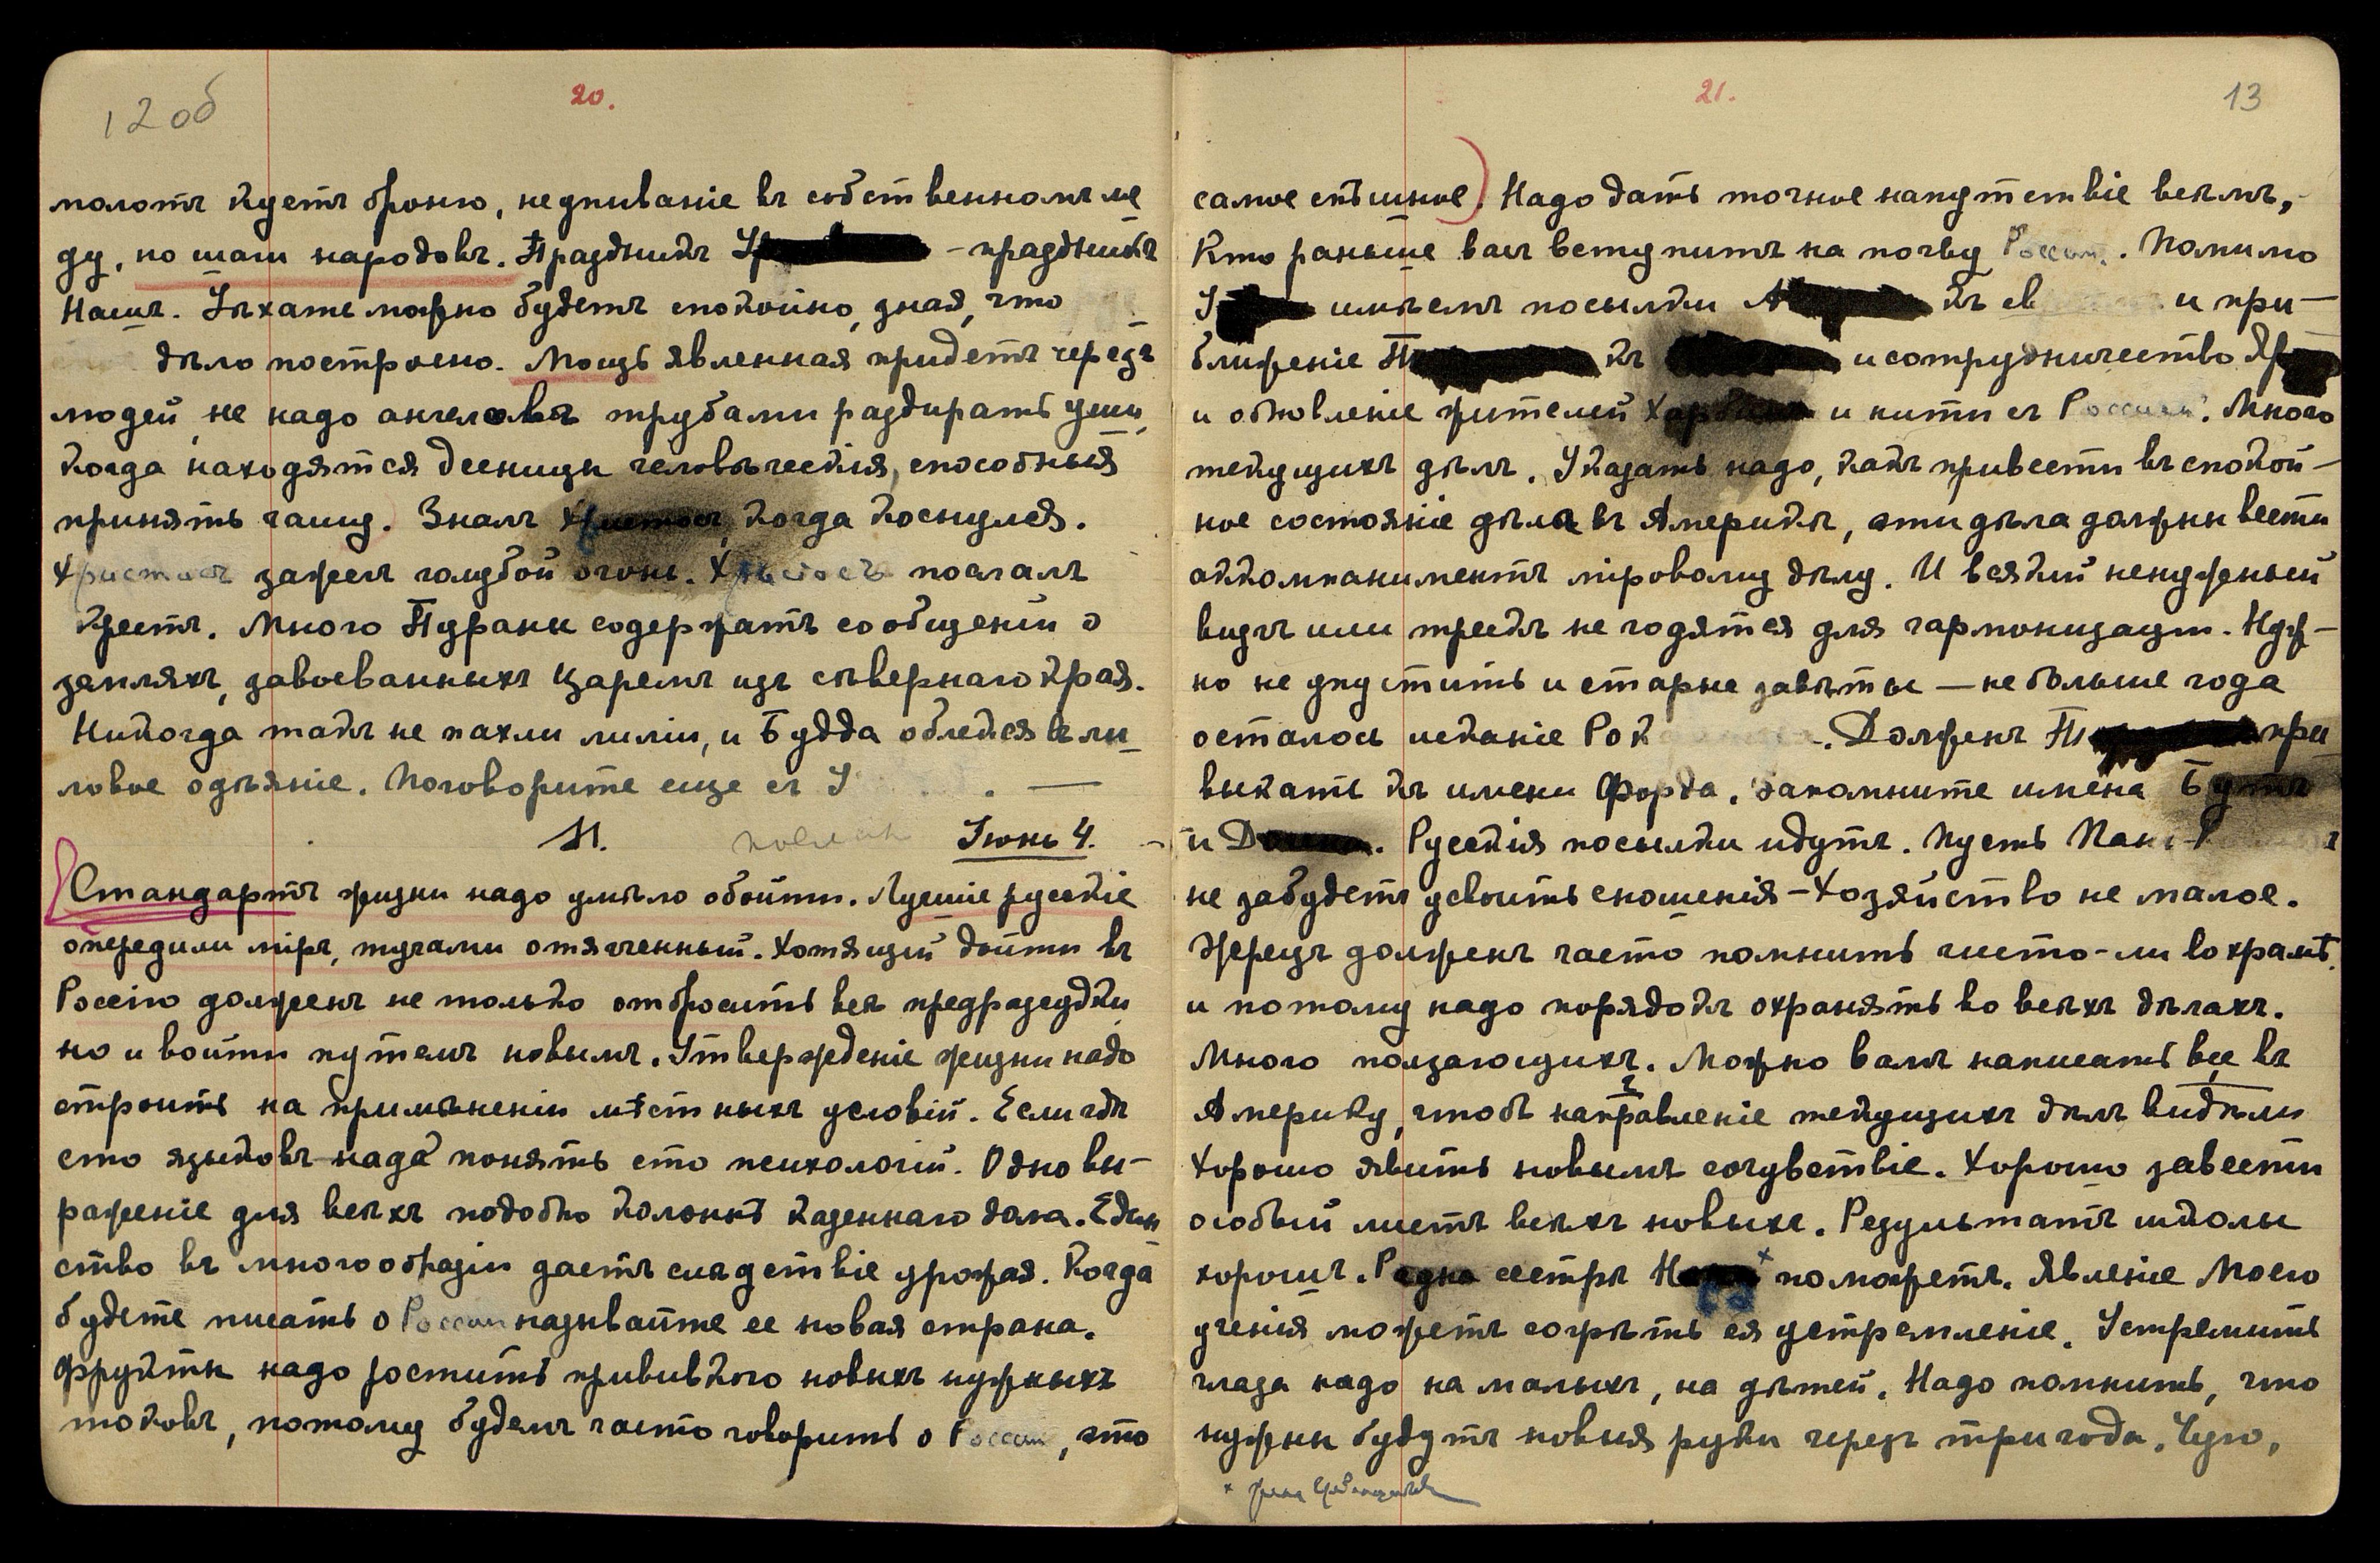 12 об
20.
молотъ куетъ броню, не упиваніе въ собственномъ ме
ду, но шаги народовъ. Праздникъ - праздникъ
Нашъ. Уѣхать можно будетъ спокойно, зная, что
дѣло построено. Мощь явленная придетъ черезъ
людей, не надо ангеловъ трубами раздирать уши,
когда находятся десницы человѣческія, способныя
принять чашу. Зналъ Христосъ, когда коснулся.
Христосъ зажегъ голубой огонь. Христосъ послалъ
крестъ. Много Пураны содержатъ сообщеній о
земляхъ, завоеванныхъ Царемъ изъ сѣвернаго края.
Никогда такъ не пахли лиліи, и Будда облекся въ ли
ловое одѣяніе. Поговорите еще съ У . —
М. Іюнь 4.
Стандартъ жизни надо умѣло обойти. Лучшіе русскіе
опередили міръ, тучами отягченный. Хотящій дойти въ
Россію долженъ не только отбросить всѣ предразсудки,
но и войти путемъ новымъ. Утвержденіе жизни надо
строить на примѣненіи мѣстныхъ условій. Если гдѣ
сто языковъ надо понять сто психологій. Одно вы-
раженіе для всѣхъ подобно колоннѣ казеннаго дома. Един
ство въ многообразіи даетъ слѣдствіе урожая. Когда
будете писать о Россіи называйте ее новая страна.
Фрукты надо ростить прививкою новыхъ нужныхъ
токовъ, потому будемъ часто говорить о Россіи, это
21.
13
самое спѣшное). Надо дать точное напутствіе всѣмъ,
кто раньше васъ вступитъ на почву Россіи. Помимо
У имѣемъ посылки къ св и при-
ближеніе къ и сотрудничество
и обновленіе жителей Харбина и нити съ Россіей. Много
текущихъ дѣлъ. Указать надо, какъ привести въ спокой-
ное состояніе дѣла въ Америкѣ, эти дѣла должны вести
аккомпаниментъ міровому дѣлу. И всякій ненужный
визгъ или трескъ не годятся для гармонизаціи. Нуж-
но не упустить и старые завѣты — не больше года
осталось исканіе Рок . Долженъ при
выкать къ имени Форда. Запомните имена
и Д . Русскія посылки идутъ. Пусть
не забудетъ усвоить сношенія – хозяйство не малое.
Жрецъ долженъ часто помнить чисто-ли во храмѣ,
и потому надо порядокъ охранять во всѣхъ дѣлахъ.
Много ползающихъ. Можно вамъ написать все въ
Америку, чтобъ направленіе текущихъ дѣлъ видѣли
Хорошо явить новымъ сочувствіе. Хорошо завести
особый листъ всѣхъ новыхъ. Результатъ школы
хорошъ. Радна сестрѣ поможетъ. Явленіе Моего
ученія можетъ согрѣть ея устремленіе. Устремить
глаза надо на малыхъ, на дѣтей. Надо помнить, что
нужны будутъ новыя руки черезъ три года. Чую,